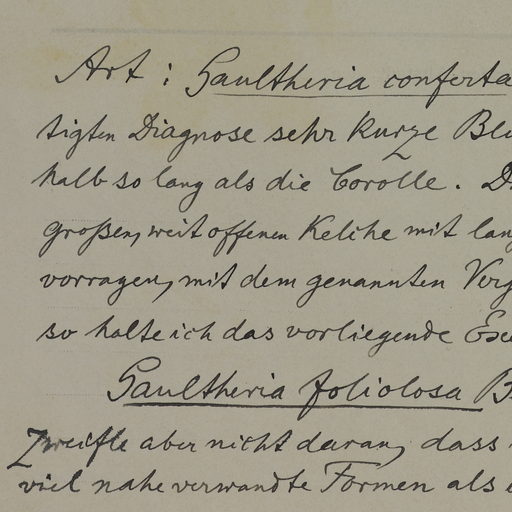 Art: Gaultheria conferta
tigten Diagnose sehr kurze
halb so lang als die Corolle.
großen, weit offenen Kelche mit
vorragen, mit dem genannten
so halte ich das vorliegende
Gaultheria foliolosa
Zweifle aber nicht daran, dass
viel nahe verwandte Formen als